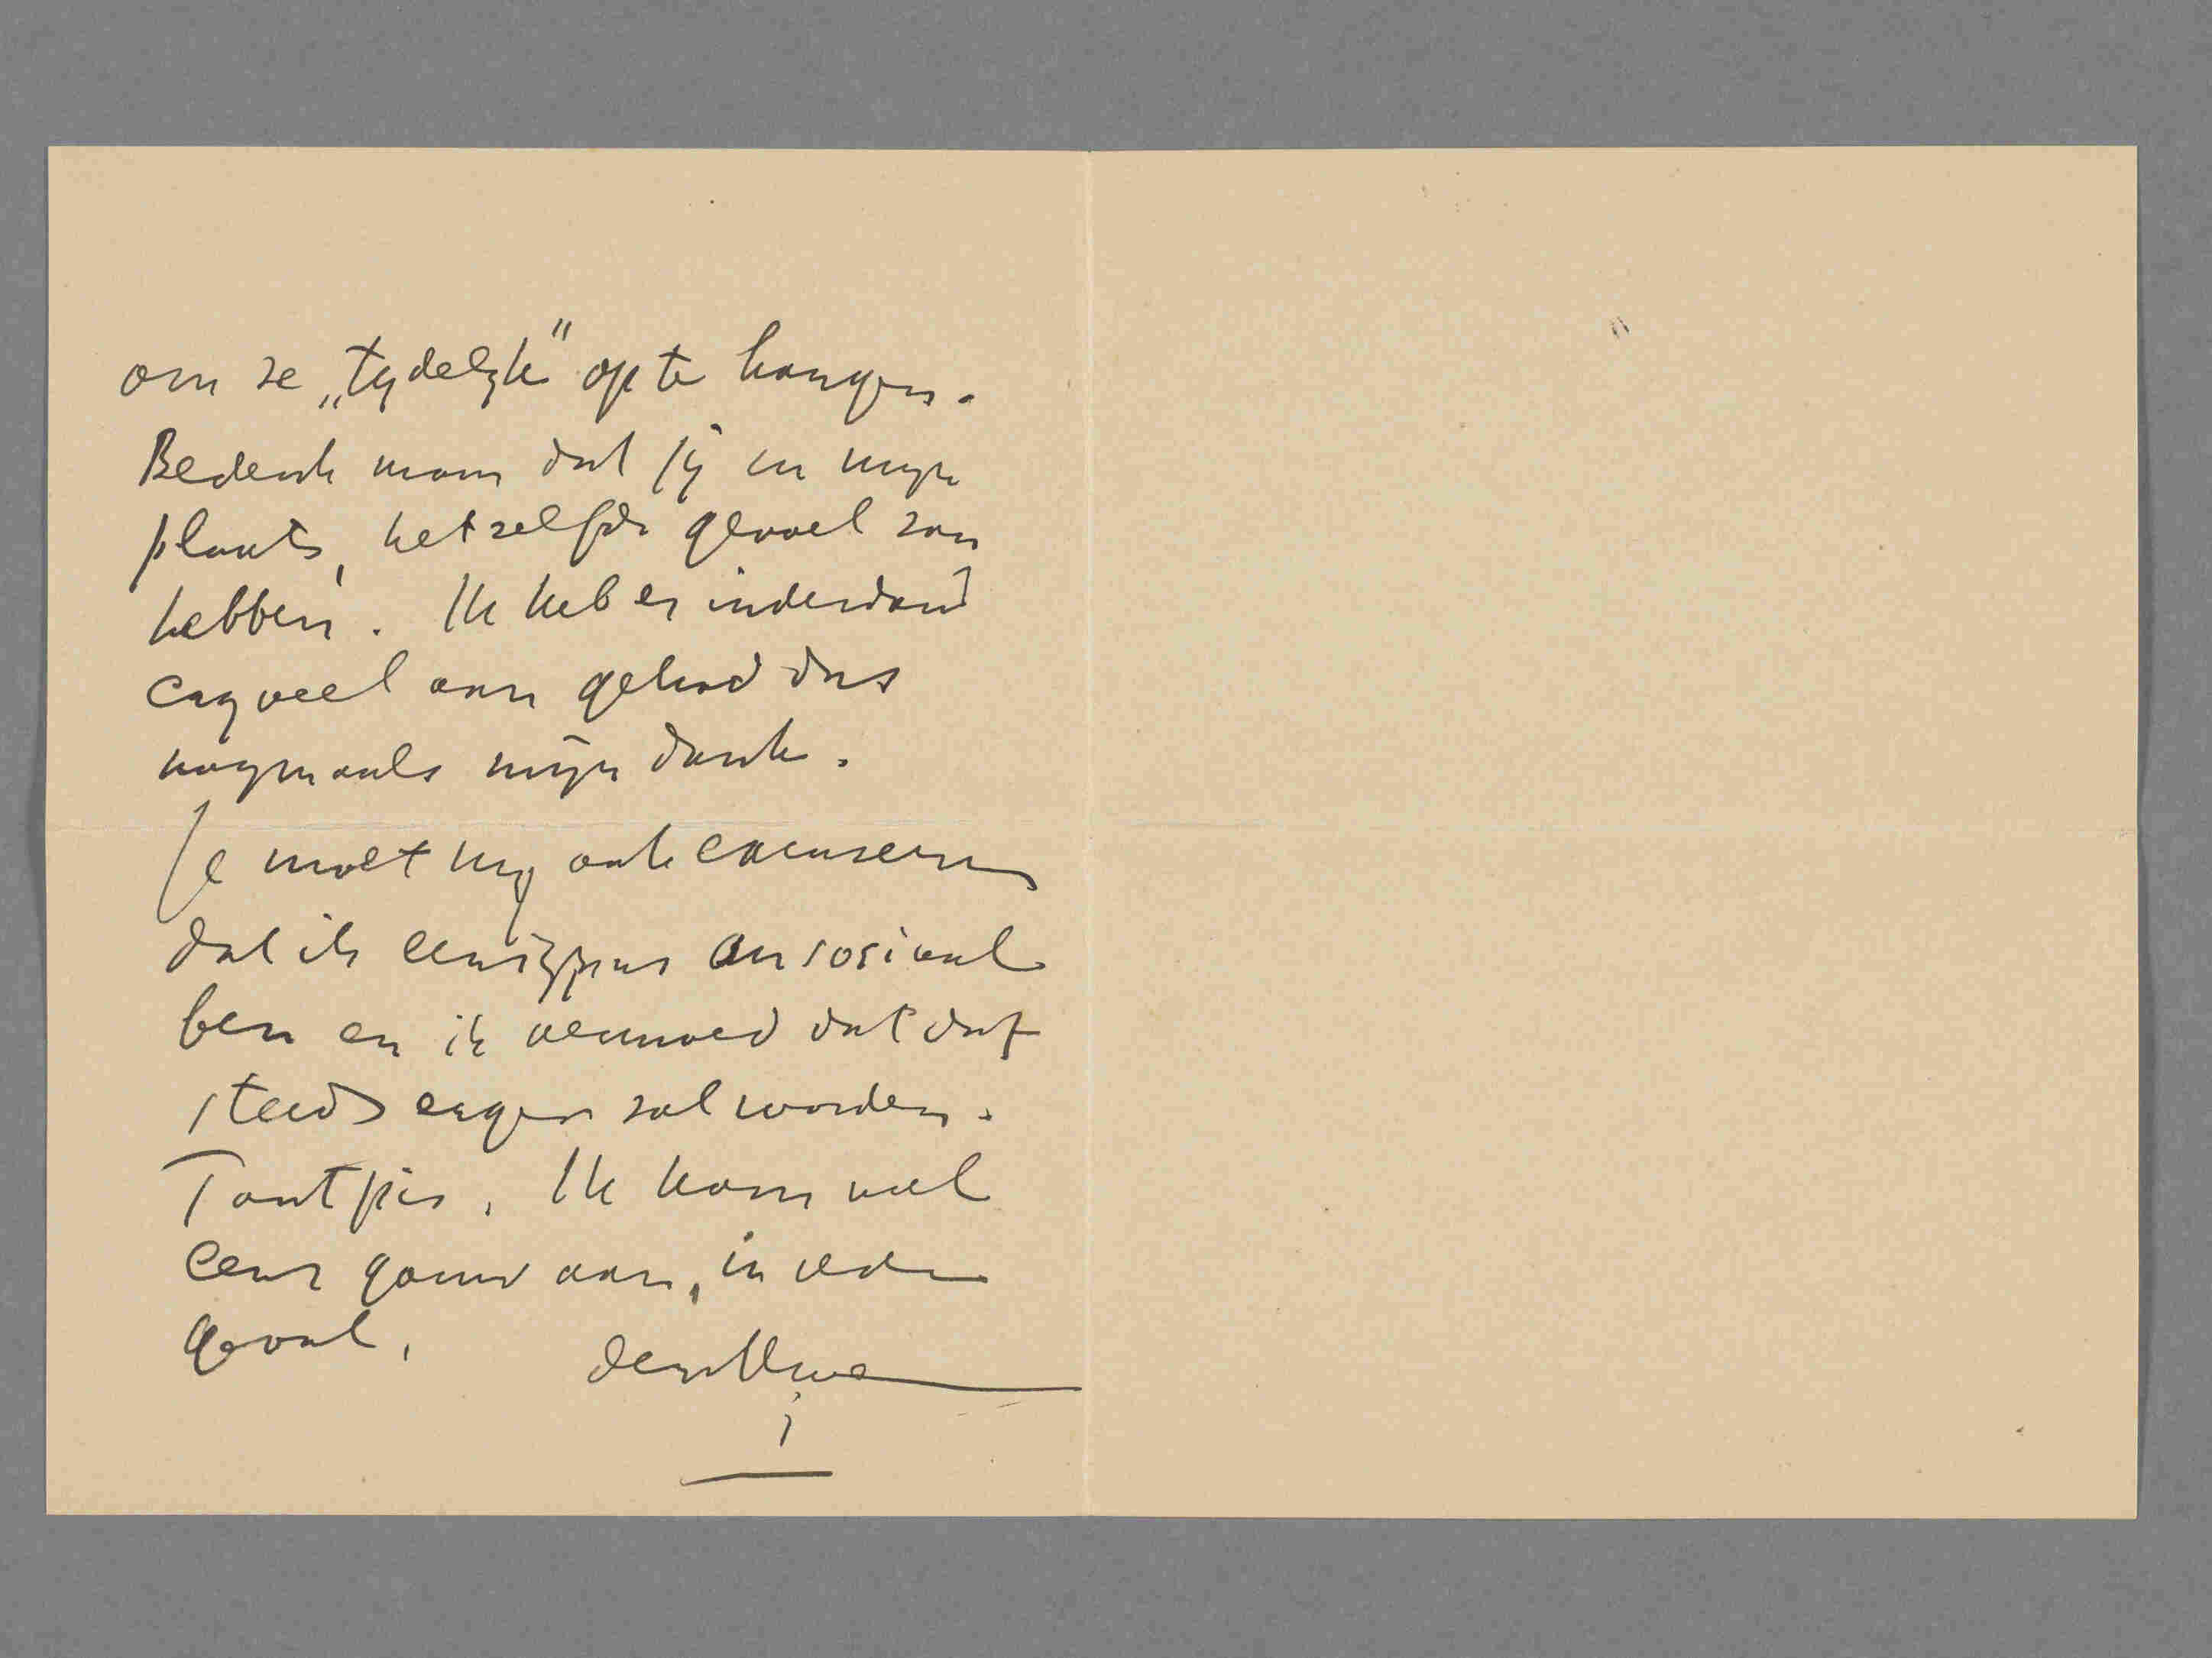 om ze „tydelyk" op te hangen.
Bedenk maar dat jij in mijn
plaats, hetzelfde gevoel zou
hebben. Ik heb er inderdaad
erg veel aan gehad dus
nogmaals mijn dank.
Je moet my ook excuseren
dat ik eenigzins onsociaal
ben en ik vermoed dat dat
steeds erger zal worden.
Tant pis. Ik kom wel
eens gauw aan, in ieder
geval,